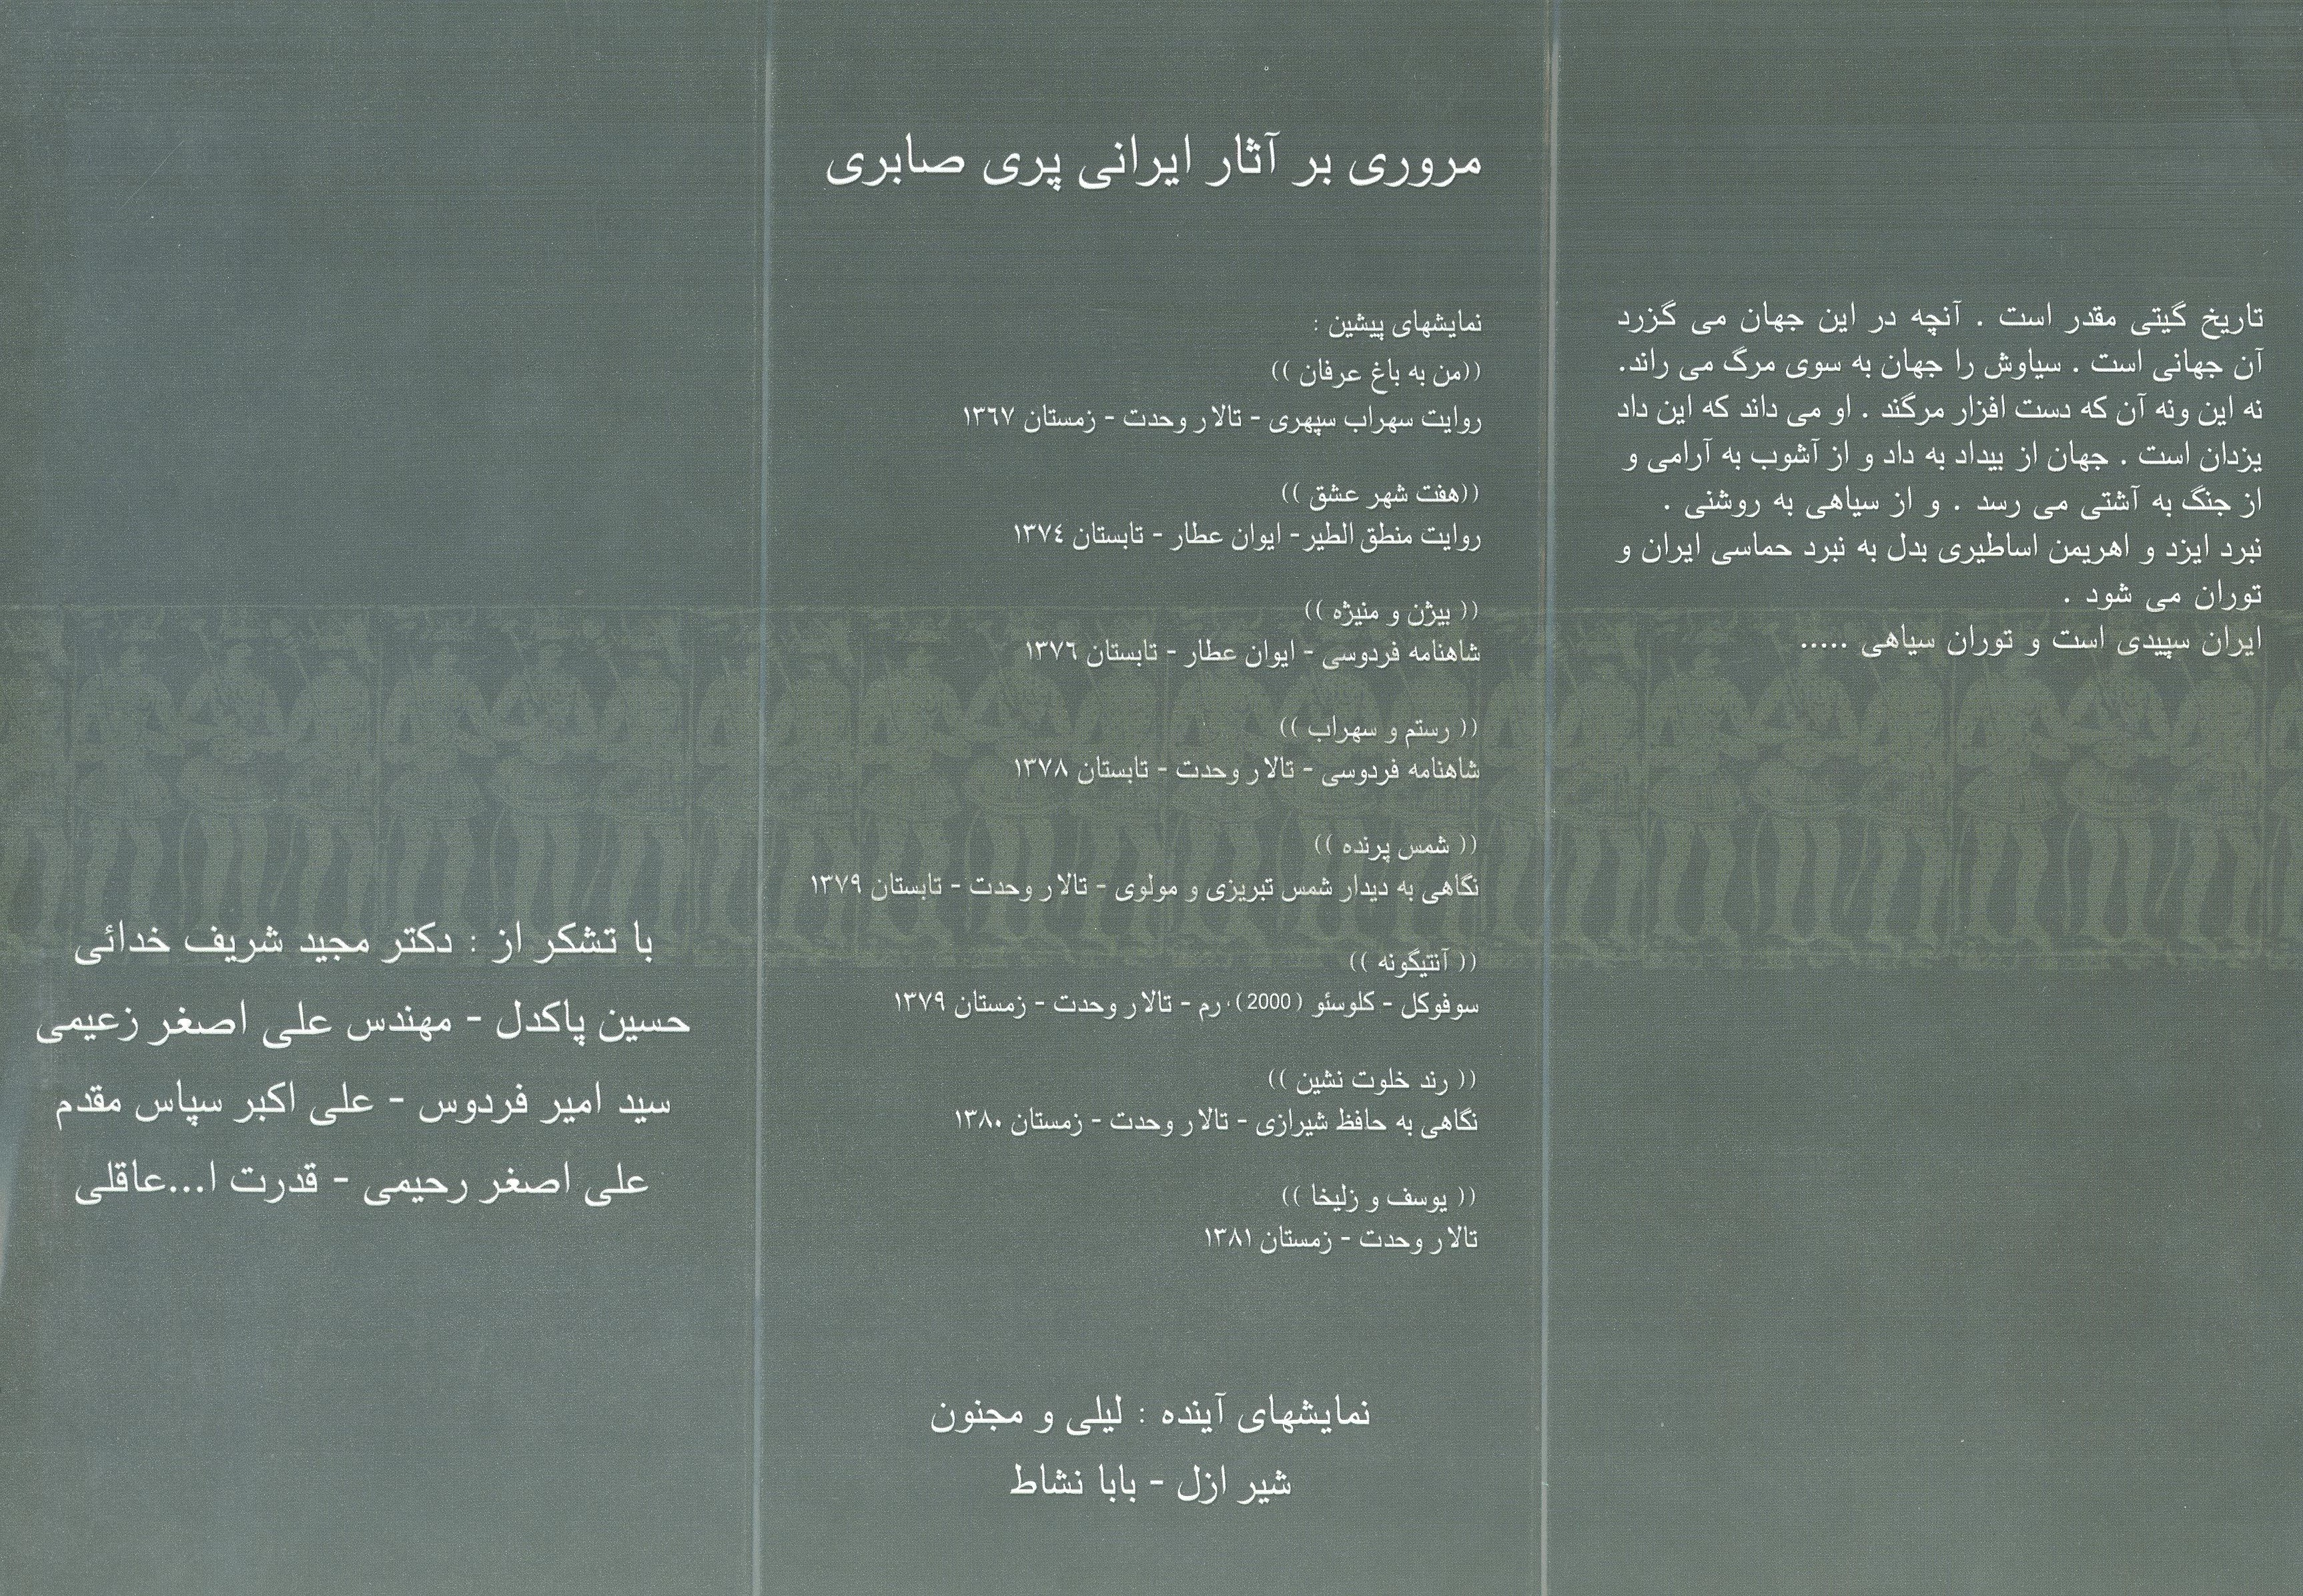 تاریخ گیتی مقدر است . آنچه در این جهان می گزرد
آن جهانی است . سیاوش را جهان به سوی مرگ می راند.
نه این ونه آن که دست افزار مرگند . او می داند که این داد
یزدان است . جهان از بیداد به داد و از آشوب به آرامی و
از جنگ به آشتی می رسد . و از سیاهی به روشنی .
نبرد ایزد و اهریمن اساطیری بدل به نبرد حماسی ایران و
توران می شود .
ایران سپیدی است و توران سیاهی .....
مروری بر آثار ایرانی پری صابری
نمایشهای پیشین :
((من به باغ عرفان ))
روایت سهراب سپهری - تالار وحدت - زمستان ۱۳۶۷
((هفت شهر عشق ))
روایت منطق الطیر- ایوان عطار - تابستان ۱۳۷۴
(( بیژن و منیژه ))
شاهنامه فردوسی - ایوان عطار - تابستان ۱۳۷۶
(( رستم و سهراب ))
شاهنامه فردوسی - تالار وحدت - تابستان ۱۳۷۸
(( شمس پرنده ))
نگاهی به دیدار شمس تبریزی و مولوی - تالار وحدت - تابستان ۱۳۷۹
(( آنتیگونه ))
سوفوکل - کلوسئو (2000)، رم - تالار وحدت - زمستان ۱۳۷۹
(( رند خلوت نشین ))
نگاهی به حافظ شیرازی - تالار وحدت - زمستان ۱۳۸۰
(( یوسف و زلیخا ))
تالار وحدت - زمستان ۱۳۸۱
نمایشهای آینده : لیلی و مجنون
شیر ازل - بابا نشاط
با تشکر از : دکتر مجید شریف خدائی
حسین پاکدل - مهندس علی اصغر زعیمی
سید امیر فردوس - علی اکبر سپاس مقدم
علی اصغر رحیمی - قدرت ا...عاقلی